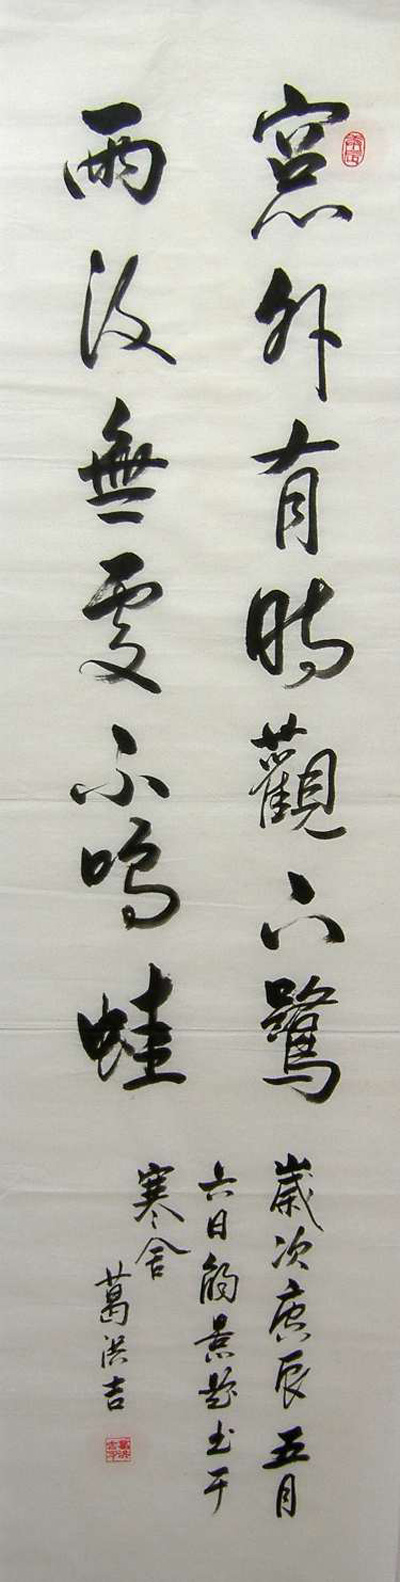 窓外有時觀下鷺
雨後無處不鳴蛙
歲次庚辰五月
六日觸景題書于
寒舍
葛洪吉